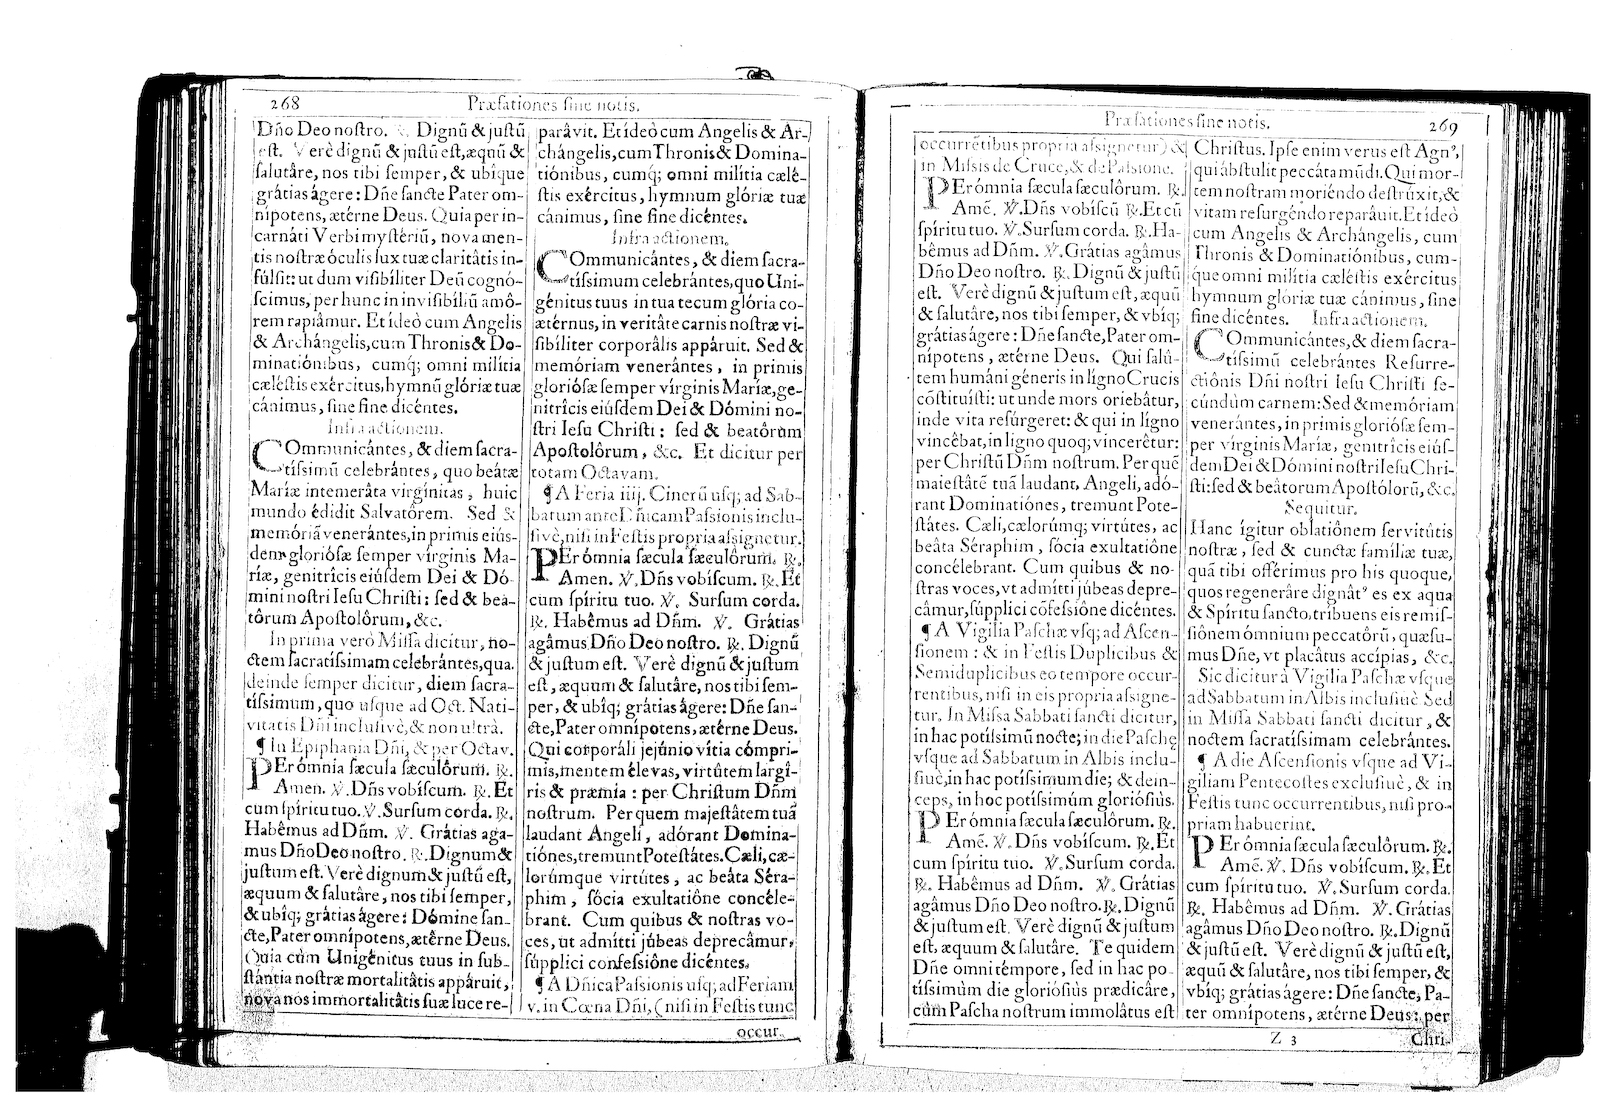 268
Præfationes ſine notis.
Dño Deo noſtro. Dignũ & juſtũ
eſt. Verè dignũ & juſtũ eſt, æquũ &
ſalutâre, nos tibi ſemper, & ubîque
grátias ágere: Dñe ſancte Pater om-
nípotens, ætérne Deus. Quia per in-
carnáti Verbi myſtériũ, nova men-
tis noſtræ óculis lux tuæ claritâtis in-
fúlſit: ut dum viſibíliter Deũ cognó-
ſcimus, per hunc in inviſibíliũ amô-
rem rapiâmur. Et ídeò cum Angelis
& Archángelis, cum Thronis & Do-
minatiónibus, cumq; omni milítia
cæléſtis exércitus, hymnũ glóriæ tuæ
cánimus, ſine fine dicéntes.
Infra actionem.
COmmunicántes, & diem ſacra-
tíſsimũ celebrántes, quo beátæ
Maríæ intemeráta virgínitas, huic
mundo édidit Salvatôrem. Sed &
memóriã venerántes, in primis eiús-
dem glorióſæ ſemper vírginis Ma-
ríæ, genitrîcis eiúſdem Dei & Dó-
mini noſtri Ieſu Chriſti: ſed & bea-
tôrum Apoſtolôrum, &c.
In prima verò Miſſa dicitur, no-
ctem ſacratíſsimam celebrántes, qua.
deinde ſemper dicitur, diem ſacra-
tíſsimum, quo uſque ad Oct. Nati-
vitatis Dñi incluſivè, & non ultrà.
¶ In Epiphania Dñi, & per Octav.
PEr ómnia ſæcula ſæculôrum. ℟.
Amen. ℣. Dñs vobíſcum. ℟. Et
cum ſpíritu tuo. ℣. Surſum corda. ℟.
Habêmus ad Dñm. ℣. Grátias aga-
mus Dño Deo noſtro. ℟. Dignum &
juſtum eſt. Verè dignum & juſtũ eſt,
æquum & ſalutâre, nos tibi ſemper,
& ubíq; grátias ágere: Dómine ſan-
cte, Pater omnípotens, ætêrne Deus.
Quia cùm Unigénitus tuus in ſub-
ſtántia noſtræ mortalitâtis appáruit,
nova nos immortalitâtis ſuæ luce re-
parâvit. Et ídeò cum Angelis & Ar-
chángelis, cum Thronis & Domina-
tiónibus, cumq; omni milítia cælé-
ſtis exércitus, hymnum glóriæ tuæ
cánimus, ſine fine dicéntes.
Infra actionem.
COmmunicántes, & diem ſacra-
tíſsimum celebrántes, quo Uni-
génitus tuus in tua tecum glória co-
ætérnus, in veritâte carnis noſtræ vi-
ſibíliter corporâlis appáruit. Sed &
memóriam venerántes, in primis
glorióſæ ſemper vírginis Maríæ, ge-
nitrîcis eiúſdem Dei & Dómini no-
ſtri Ieſu Chriſti: ſed & beatôrum
Apoſtolôrum, &c. Et dicitur per
totam Octavam.
¶ A Feria iiij. Cinerũ uſq; ad Sab-
batum ante Dñicam Paſsionis inclu-
ſivè, niſi in Feſtis propria aſsignetur.
PEr ómnia ſæcula ſæculôrum. ℟.
Amen. ℣. Dñs vobíſcum. ℟. Et
cum ſpíritu tuo. ℣. Surſum corda.
℟. Habêmus ad Dñm. ℣. Grátias
agâmus Dño Deo noſtro. ℟. Dignũ
& juſtum eſt. Verè dignũ & juſtum
eſt, æquum & ſalutâre, nos tibi ſem-
per, & ubíq; grátias ágere: Dñe ſan-
cte, Pater omnípotens, ætérne Deus.
Qui corporáli jejúnio vítia cómpri-
mis, mentem élevas, virtûtem largî-
ris & præmia: per Chriſtum Dñm
noſtrum. Per quem majeſtâtem tuã
laudant Angeli, adórant Domina-
tiónes, tremunt Poteſtátes. Cæli, cæ-
lorúmque virtútes, ac beáta Séra-
phim, ſócia exultatiône concéle-
brant. Cum quibus & noſtras vo-
ces, ut admítti júbeas deprecâmur,
ſúpplici confeſsiône dicéntes.
¶ A Dñica Paſsionis uſq; ad Feriam
v. in Cœna Dñi, (niſi in Feſtis tunc
occur.
Præfationes ſine notis.
269
occurrẽtibus propria aſsignetur) &
in Miſsis de Cruce, & de Paſsione.
PEr ómnia ſæcula ſæculôrum. ℟.
Amẽ. ℣. Dñs vobíſcũ ℟. Et cũ
ſpíritu tuo. ℣. Surſum corda. ℟. Ha-
bêmus ad Dñm. ℣. Grátias agâmus
Dño Deo noſtro. ℟. Dignũ & juſtũ
eſt. Verè dignũ & juſtum eſt, æquũ
& ſalutáre, nos tibi ſemper, & vbíq;
grátias ágere: Dñe ſancte, Pater om-
nípotens, ætérne Deus. Qui ſalú-
tem humáni géneris in lígno Crucis
cõſtituíſti: ut unde mors oriebâtur,
inde vita reſúrgeret: & qui in lígno
vincêbat, in ligno quoq; vincerêtur:
per Chriſtũ Dñm noſtrum. Per quẽ
maieſtâtẽ tuã laudant, Angeli, adó-
rant Dominatiónes, tremunt Pote-
ſtátes. Cæli, cælorúmq; virtútes, ac
beâta Séraphim, ſócia exultatiône
concélebrant. Cum quibus & no-
ſtras voces, vt admítti júbeas depre-
câmur, ſúpplici cõfeſsióne dicéntes.
¶ A Vigilia Paſchæ vſq; ad Aſcen-
ſionem: & in Feſtis Duplicibus &
Semiduplicibus eo tempore occur-
rentibus, niſi in eis propria aſsigne-
tur. In Miſsa Sabbati ſancti dicitur,
in hac potíſsimũ nocte; in die Paſchę
vſque ad Sabbatum in Albis inclu-
ſiuè, in hac potíſsimum die; & dein-
ceps, in hoc potíſsimúm glorióſiùs.
PEr ómnia ſæcula ſæculôrum. ℟.
Amẽ. ℣. Dñs vobíſcum. ℟. Et
cum ſpíritu tuo. ℣. Surſum corda.
℟. Habêmus ad Dñm. ℣. Grátias
agâmus Dño Deo noſtro. ℟. Dignũ
& juſtum eſt. Verè dignũ & juſtum
eſt, æquum & ſalutâre. Te quidem
Dñe omni témpore, ſed in hac po-
tíſsimùm die glorióſiùs prædicáre,
cùm Paſcha noſtrum immolâtus eſt
Chriſtus. Ipſe enim verus eſt Agnꝰ,
qui ábſtulit peccáta mũdi. Qui mor-
tem noſtram moriéndo deſtrúxit, &
vitam reſurgéndo reparâuit. Et ídeò
cum Angelis & Archángelis, cum
Thronis & Dominatiónibus, cum-
que omni milítia cæléſtis exércitus
hymnum glóriæ tuæ cánimus, ſine
fine dicéntes. Infra actionem.
COmmunicántes, & diem ſacra-
tíſsimũ celebrántes Reſurre-
ctiónis Dñi noſtri Ieſu Chriſti ſe-
cúndùm carnem: Sed & memóriam
venerántes, in primis glorióſæ ſem-
per vírginis Maríæ, genitrîcis eiúſ-
dem Dei & Dómini noſtri Ieſu Chri-
ſti: ſed & beâtorum Apoſtólorũ, &c.
Sequitur.
Hanc ígitur oblatiônem ſervitûtis
noſtræ, ſed & cunctæ famíliæ tuæ,
quã tibi offérimus pro his quoque,
quos regenerâre dignâtꝰ es ex aqua
& Spíritu ſancto, tríbuens eis remiſ-
ſiônem ómnium peccatórũ, quæſu-
mus Dñe, vt placâtus accípias, &c.
Sic dicitur à Vigilia Paſchæ vſque
ad Sabbatum in Albis incluſiuè Sed
in Miſſa Sabbati ſancti dicitur, &
noctem ſacratíſsimam celebrántes.
¶ A die Aſcenſionis vſque ad Vi-
giliam Pentecoſtes excluſiuè, & in
Feſtis tunc occurrentibus, niſi pro-
priam habuerint.
PEr ómnia ſæcula ſæculôrum. ℟.
Amẽ. ℣. Dñs vobíſcum. ℟. Et
cum ſpíritu tuo. ℣. Surſum corda.
℟. Habêmus ad Dñm. ℣. Grátias
agâmus Dño Deo noſtro. ℟. Dignũ
& juſtũ eſt. Verè dignũ & juſtũ eſt,
æquũ & ſalutáre, nos tibi ſemper, &
vbíq; grátias ágere: Dñe ſancte, Pa-
ter omnípotens, ætérne Deus: per
Z 3
Chri-